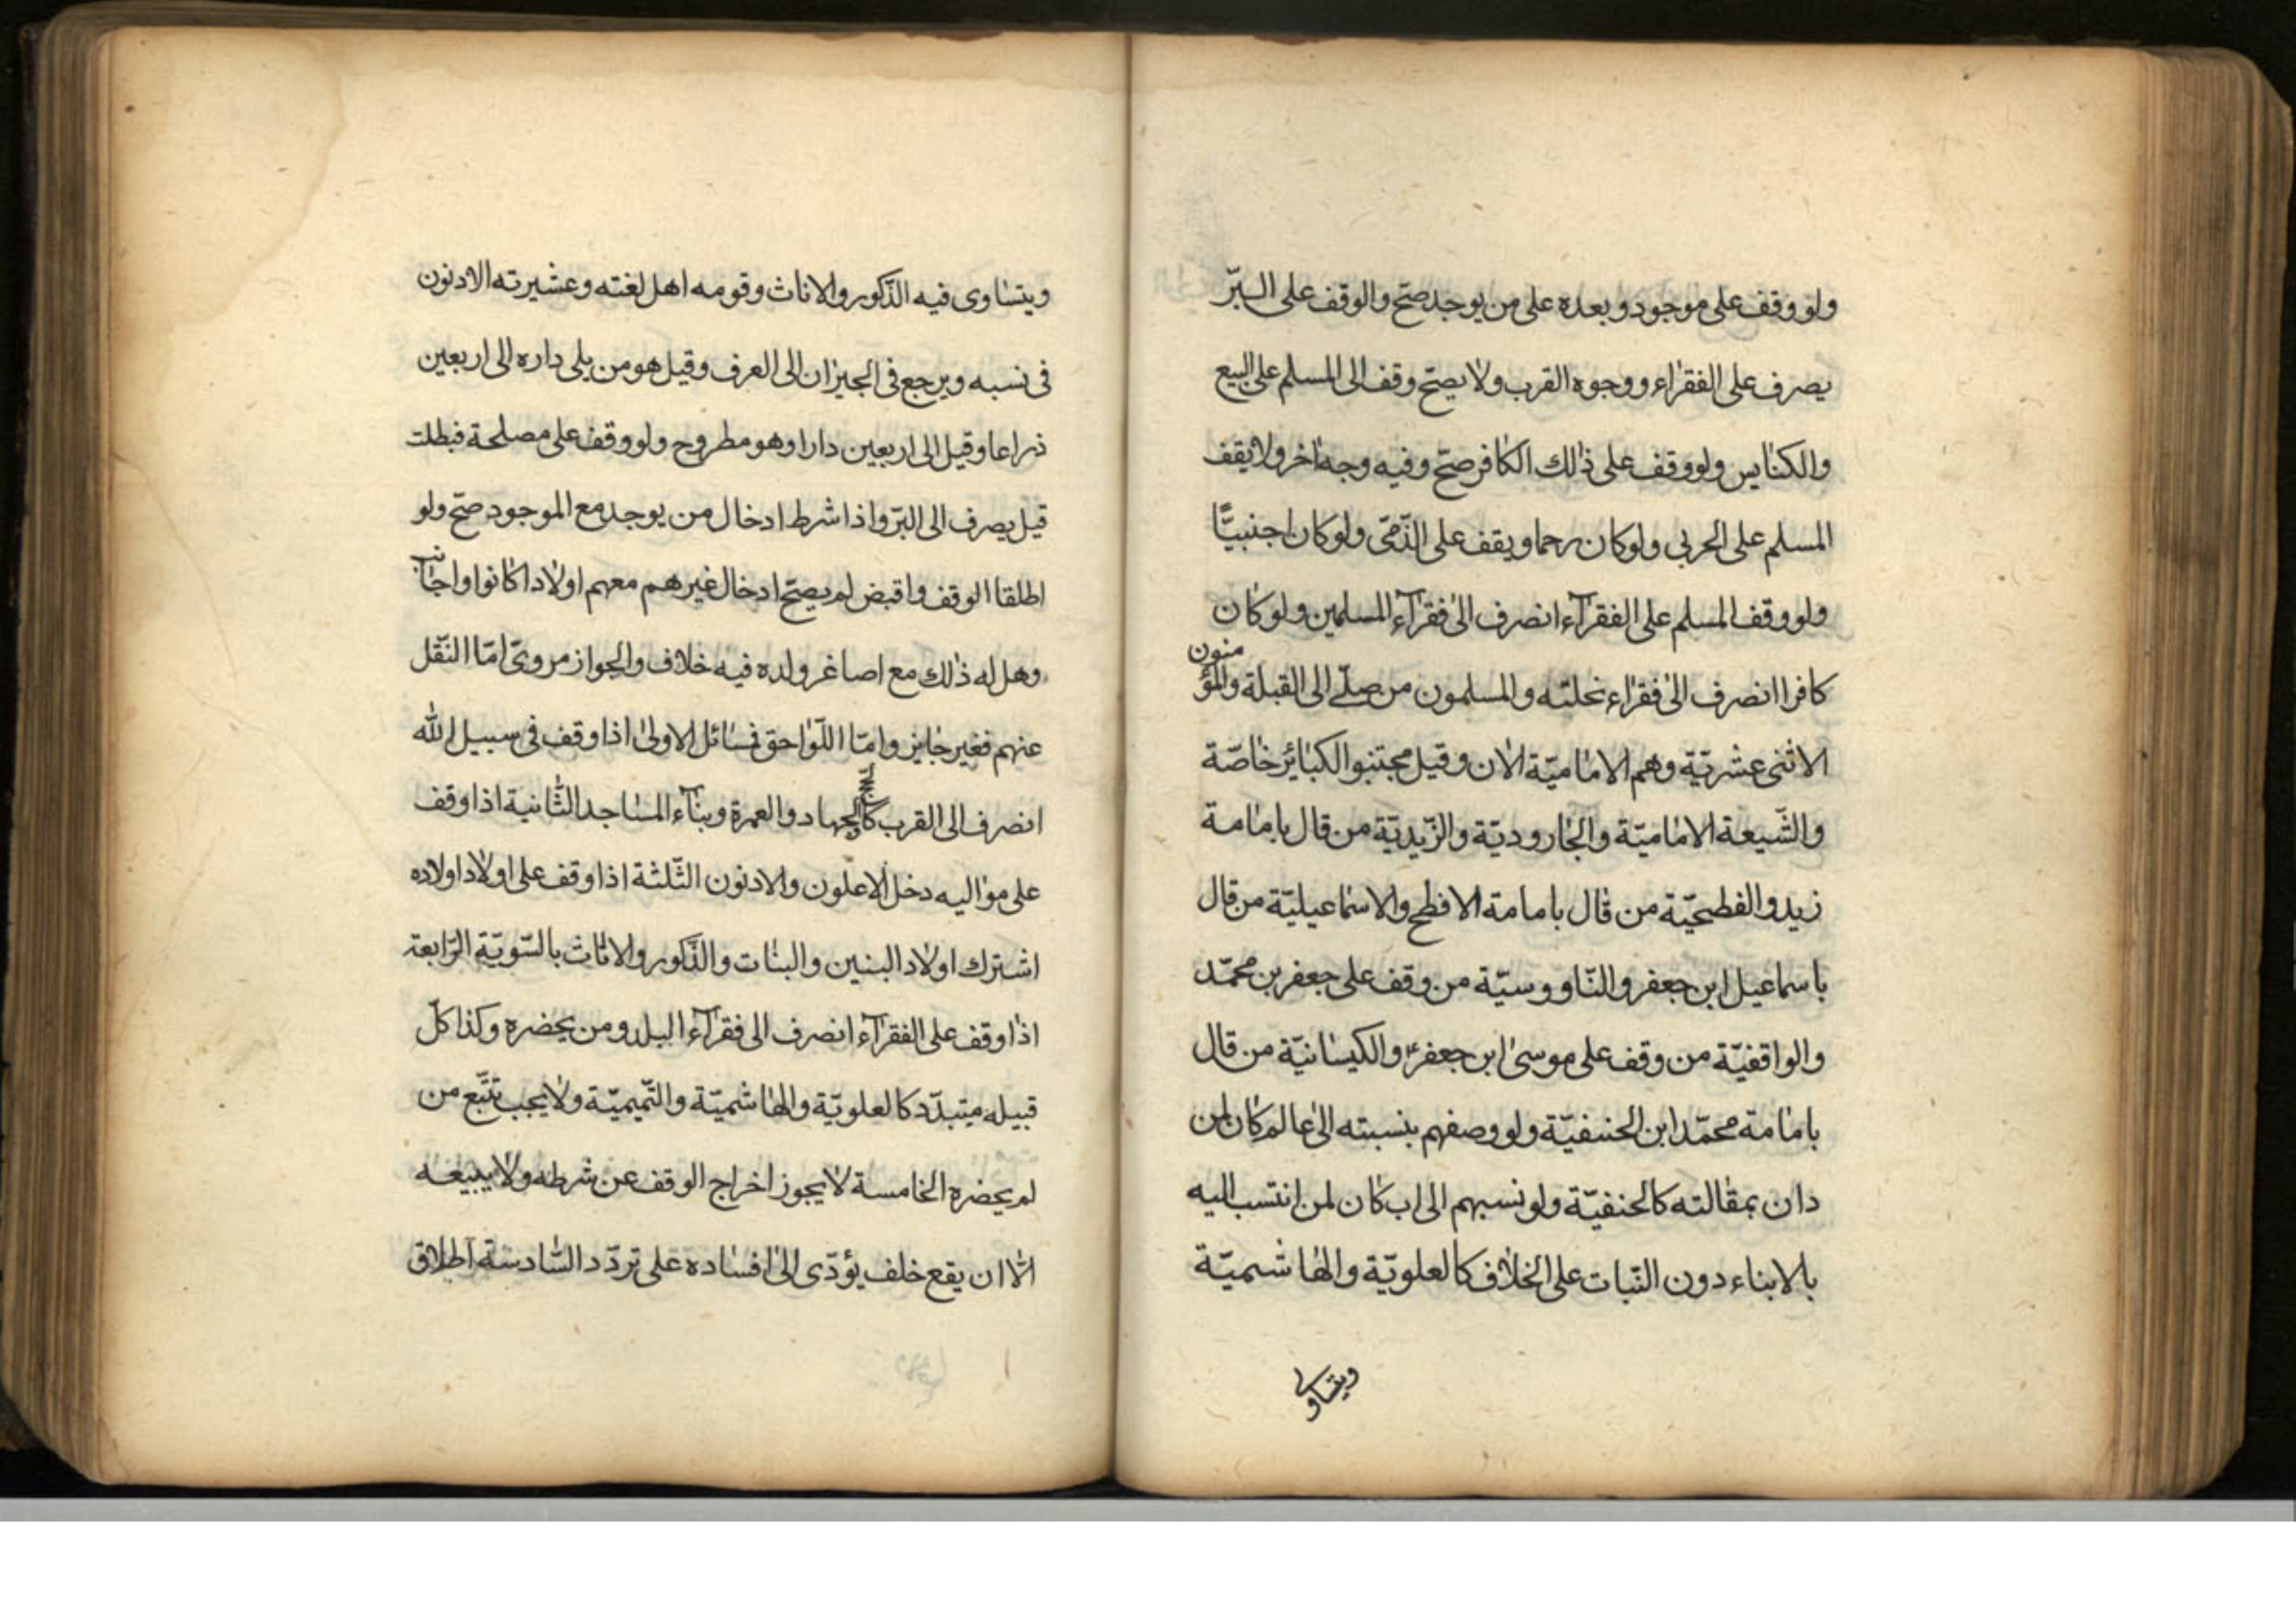 ولو وقف على موجود وبعده على من يوجد صحّ والوقف على البرّ
يصرف على الفقراء ووجوه القرب ولا يصحّ وقف الى المسلم على البيع
والكنايس ولو وقف على ذلك الكافر صحّ وفيه وجه اخر ولا يقف
المسلم على الحربى ولو كان رحما ويقف على الذّمّى ولو كان اجنبيّا
ولو وقف المسلم على الفقرآء انصرف الى فقرآء المسلمين ولو كان
كافرا انصرف الى فقراء نحلته والمسلمون من صلّى الى القبلة والمؤمنون
الاثنى عشريّة وهم الاماميّة الان وقيل مجتنبو الكبائر خاصّة
والشّيعة الاماميّة والجاروديّة والزّيديّة من قال بامامة
زيد والفطحيّة من قال بامامة الافطح والاسماعيليّة من قال
باسماعيل ابن جعفر والنّاووسيّة من وقف على جعفر بن محمّد
والواقفيّة من وقف على موسى ابن جعفر ع والكيسانيّة من قال
بامامة محمّد ابن الحنفيّة ولو وصفهم بنسبته الى عالم كان لمن
دان بمقالته كالحنفيّة ولو نسبهم الى اب كان لمن انتسب اليه
بالابناء دون النّبات على الخلاف كالعلويّة والهاشميّة
ويتساوى
ويتساوى فيه الذّكور والاناث وقومه اهل لغته وعشيرته الادنون
فى نسبه ويرجع فى الجيران الى العرف وقيل هو من يلى داره الى اربعين
ذراعا وقيل الى اربعين دارا وهو مطروح ولو وقف على مصلحة فبطلت
قيل يصرف الى البرّ واذا شرط ادخال من يوجد مع الموجود صحّ ولو
اطلقا الوقف واقبض لم يصحّ ادخال غيرهم معهم اولادا كانوا واجانب
وهل له ذلك مع اصاغر ولده فيه خلاف والجواز مروىّ امّا النّقل
عنهم فغير جايز وامّا اللّواحق فسائل الاولى اذا وقف فى سبيل الله
انصرف الى القرب كالحجّ والجهاد والعمرة وبنآء المساجد الثّانية اذا وقف
على مواليه دخل الاعلون والادنون الثّلثة اذا وقف على اولاد اولاده
اشترك اولاد البنين والبنات والذّكور والاناث بالسّويّة الرّابعة
اذا وقف على الفقرآء انصرف الى فقرآء البلد ومن يحضره وكذا كلّ
قبيله متبدّد كالعلويّة والهاشميّة والتّميميّة ولا يجب تتبّع من
لم يحضره الخامسة لا يجوز اخراج الوقف عن شرطه ولا يبيعه
الّا ان يقع خلف يؤدّى الى افساده على تردّد السّادسة اطلاق